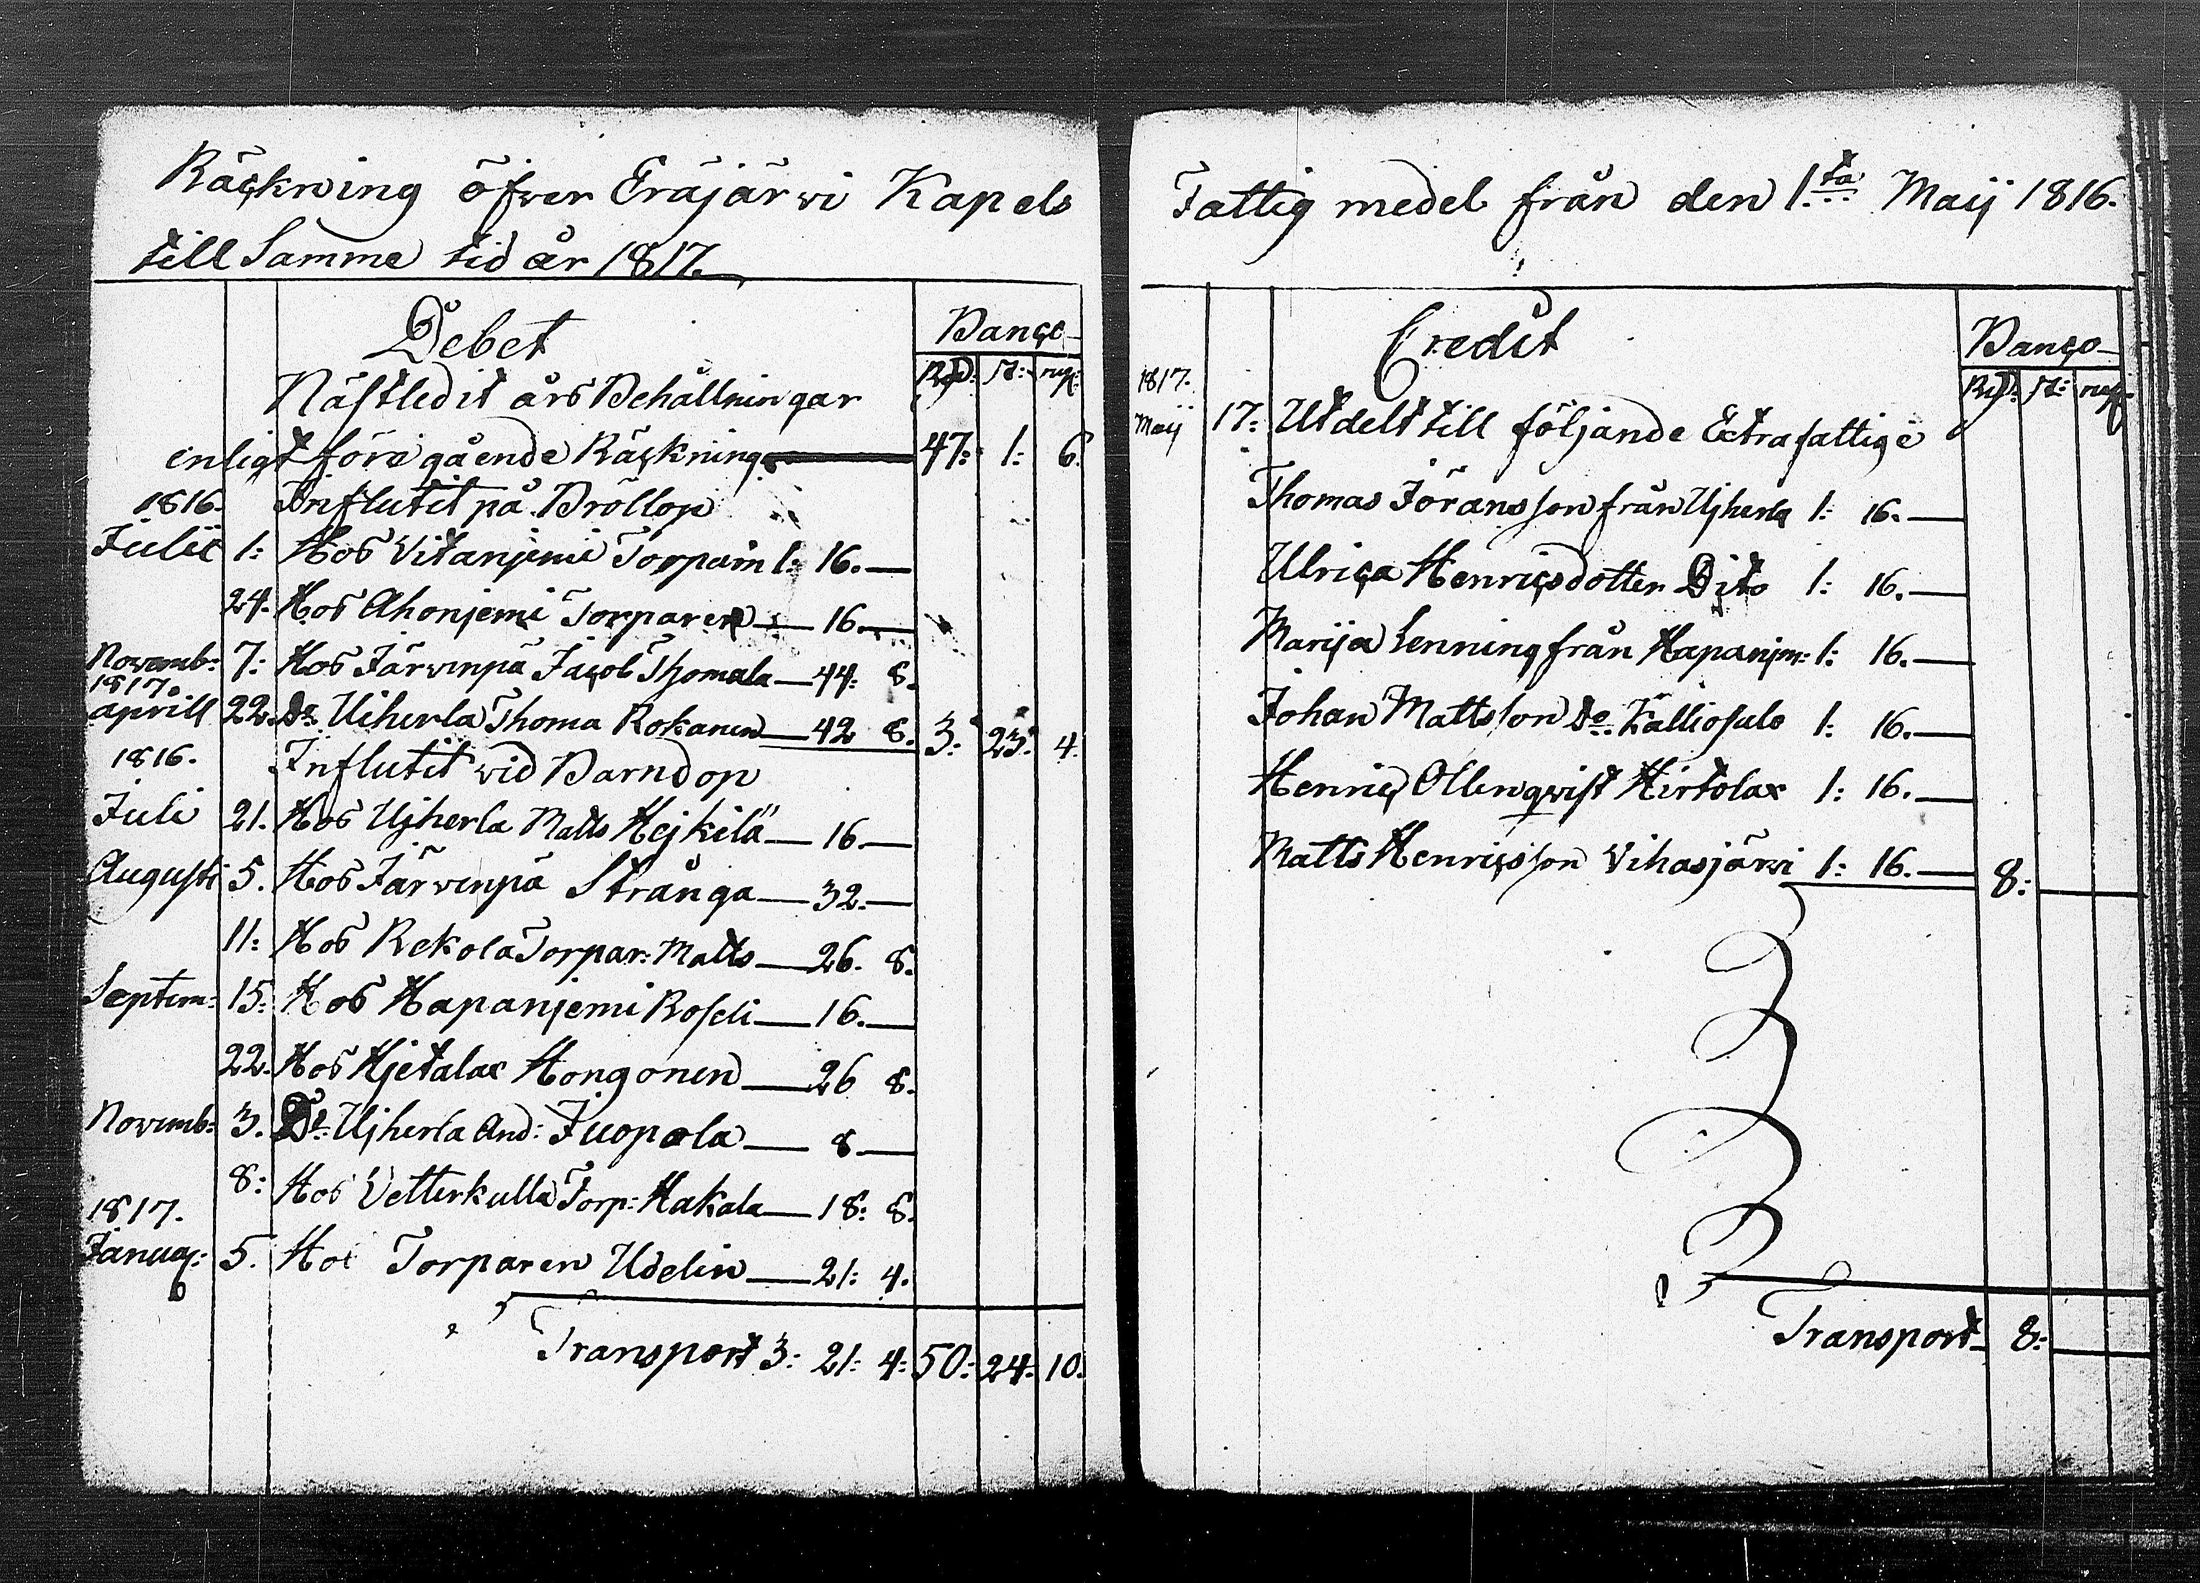 Räckning öfver Eräjärvi Kapels
till Samme tid år 1817.
Debet
Banco
Rd: st: rup:
Nästledit års Behållningar
enligt föregående Räckning 47: 1: 6.
1816. Influtit på Bröllop
Julii 1: Hos Vitanjemi Torparn 1: 16.
24. Hos Ahonjemi Torparen 16.
Novemb: 7: Hos Järvenpä Jacob Thomala 44: 8.
1817.
aprill 22. Do Uiherla Thoma Rokanen 42 8. 3: 23: 4.
1816. Influtit vid Barndop
Juli 21. Hos Ujherla Matts Hejkilä 16.
Augusti 5. Hos Järvenpä Strånga 32.
11: Hos Rekola Torpar: Matts 26. 8.
Septem: 15: Hos Hapanjemi Roseli 16.
22. Hos Hjetalax Hongonen 26 8.
Novemb: 3. Do Ujherla And: Juopola 8
8: Hos Vetterkulla Torp: Hakala 18: 8.
1817.
Januar: 5. Hos Torparen Udelin 21: 4.
Transport 3: 21: 4: 50: 24: 10.
Fattig medel från den 1:ta Maij 1816.
Credit
Banco
Rd: st: rup:
1817.
Maij 17: Utdelt till följande Extra fattige
Thomas Jöransson från Ujherla 1: 16.
Ulrica Henricsdotter Dito 1: 16.
Marija Lenning från Hapanjem: 1: 16.
Johan Mattsson Do Kalliosulo 1: 16.
Henric Ollenqvist Hirtolax 1: 16.
Matts Henricsson Vihasjärvi 1: 16. 8:
Transport 8: